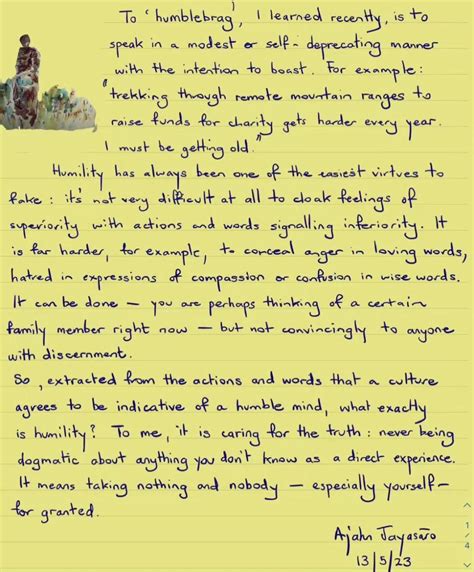 To 'humblebrag', I learned recently, is to
speak in a modest or self-deprecating manner
with the intention to boast. For example:
"trekking through remote mountain ranges to
raise funds for charity gets harder every year.
I must be getting old."
Humility has always been one of the easiest virtues to
fake: it's not very difficult at all to cloak feelings of
superiority with actions and words signalling inferiority. It
is far harder, for example, to conceal anger in loving words,
hatred in expressions of compassion or confusion in wise words.
It can be done — you are perhaps thinking of a certain
family member right now — but not convincingly to anyone
with discernment.
So, extracted from the actions and words that a culture
agrees to be indicative of a humble mind, what exactly
is humility? To me, it is caring for the truth: never being
dogmatic about anything you don't know as a direct experience.
It means taking nothing and nobody — especially yourself —
for granted.
Ajahn Jayasāro
13/5/23
1/4